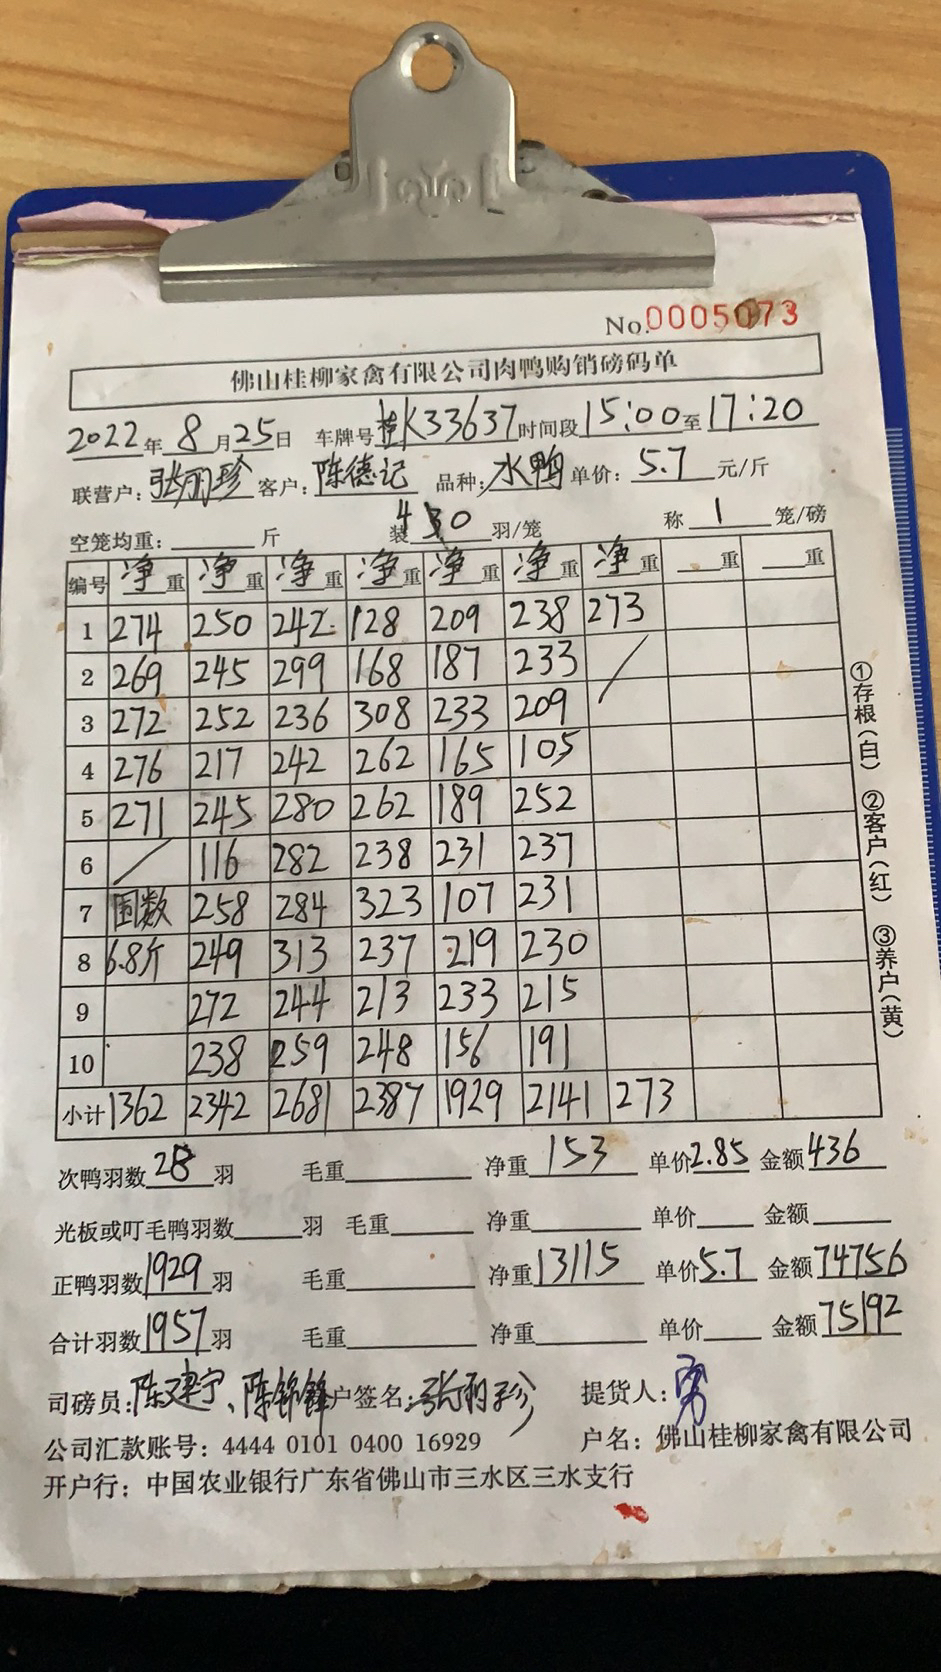 No.0005073
佛山桂柳家禽有限公司肉鸭购销磅码单
2022年8月25日 车牌号桂K33637时间段15:00至17:20
联营户:张丽珍 客户:陈德记 品种:水鸭 单价:5.7元/斤
空笼均重:____斤 装430羽/笼 称1笼/磅
编号 净重 净重 净重 净重 净重 净重 净重 __重 __重
1 274 250 242 128 209 238 273
2 269 245 299 168 187 233 /
3 272 252 236 308 233 209
4 276 217 242 262 165 105
5 271 245 280 262 189 252
6 / 116 282 238 231 237
7 国数 258 284 323 107 231
8 6.8斤 249 313 237 219 230
9 272 244 213 233 215
10 238 259 248 156 191
小计 1362 2342 2681 2387 1929 2141 273
①存根(白) ②客户(红) ③养户(黄)
次鸭羽数28羽 毛重____ 净重153 单价2.85 金额436
光板或叮毛鸭羽数____羽 毛重____ 净重____ 单价____ 金额____
正鸭羽数1929羽 毛重____ 净重13115 单价5.7 金额74756
合计羽数1957羽 毛重____ 净重____ 单价____ 金额75192
司磅员:陈建宁、陈锦锋 户签名:张丽珍 提货人:
公司汇款账号:4444 0101 0400 16929 户名:佛山桂柳家禽有限公司
开户行:中国农业银行广东省佛山市三水区三水支行